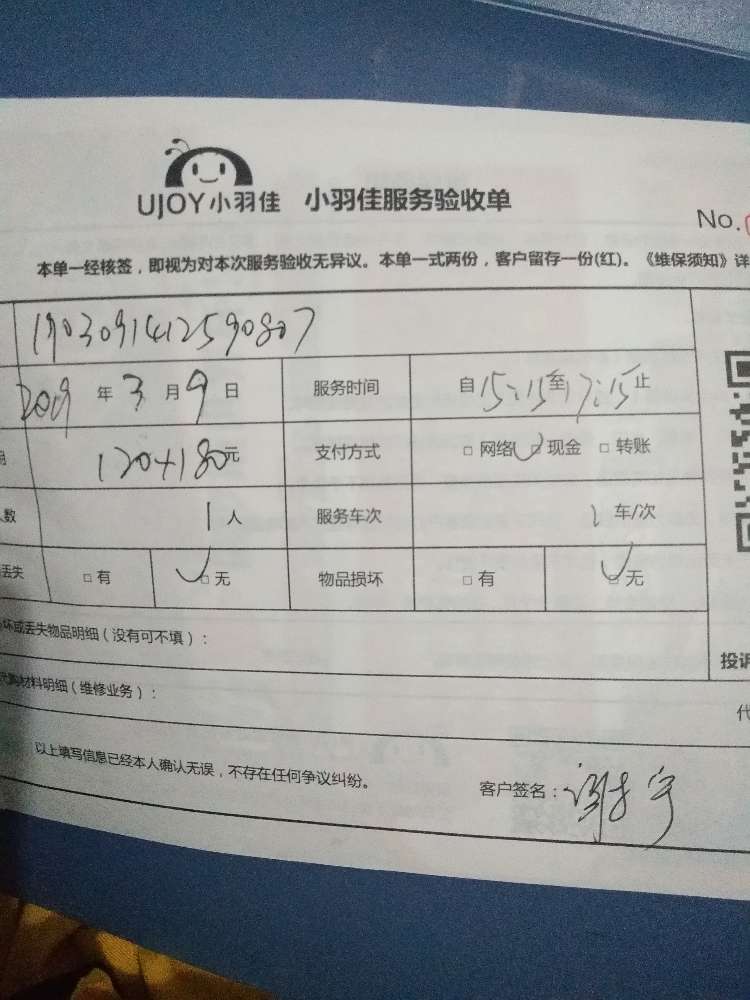 UJOY小羽佳 小羽佳服务验收单
No.
本单一经核签，即视为对本次服务验收无异议。本单一式两份，客户留存一份(红)。《维保须知》详
1903091412590807
2019年3月9日 服务时间 自15:15至17:15止
120+180元 支付方式 □网络 □现金 □转账
人数 1人 服务车次 车/次
丢失 □有 □无 物品损坏 □有 □无
坏或丢失物品明细（没有可不填）：
投诉
代购材料明细（维修业务）：
代
以上填写信息已经本人确认无误，不存在任何争议纠纷。
客户签名：